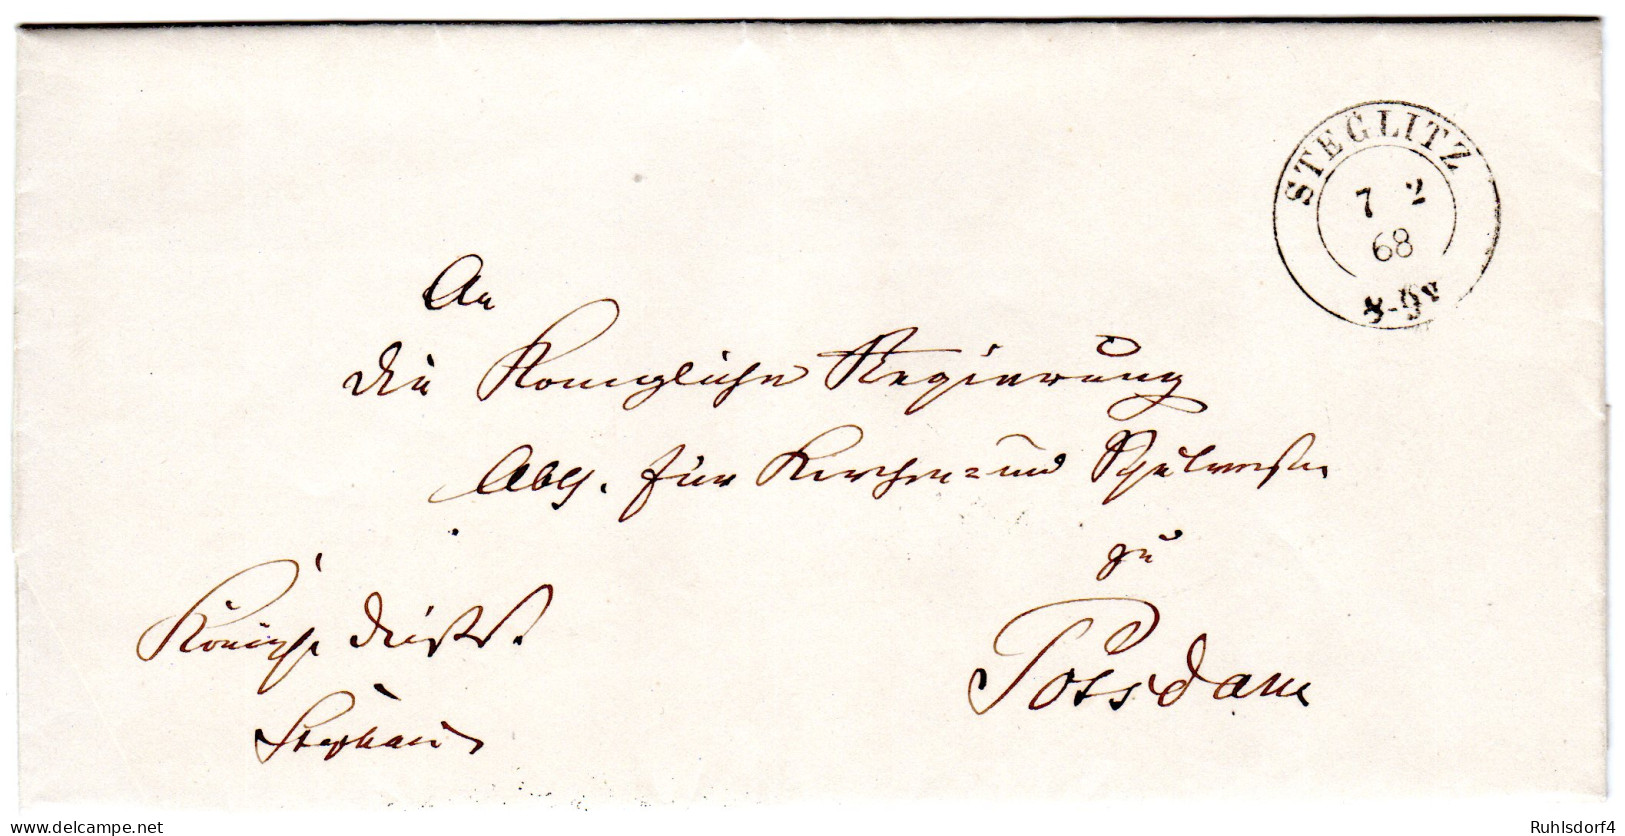 STEGLITZ
7 2
68
8-9V
An
die Königliche Regierung
Abth. für Kirchen- und Schulwesen
zu
Potsdam
Königl. Dienst.
Stephani
www.delcampe.net
Ruhlsdorf4